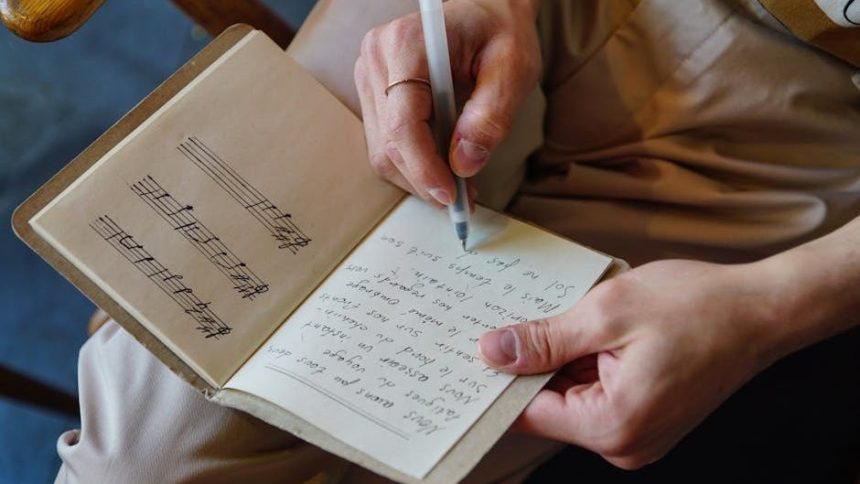 Nous avons pu tous deux,
fatigués du voyage
Nous asseoir un instant
Sur le bord du chemin-
Et sentir sur nos fronts
le même Ombrage
nos regards vers
horizon lointain.
Mais le temps suit son
ne pas